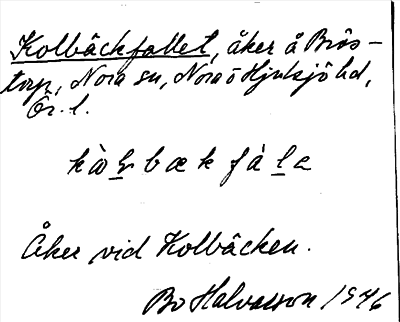 Kolbäckfallet, åker å Brås-
torp, Nora sn, Nora o Hjulsjö hd,
Ör. l.
kòḷbækfàḷa
Åker vid Kolbäcken.
Bo Halvarsson 1946